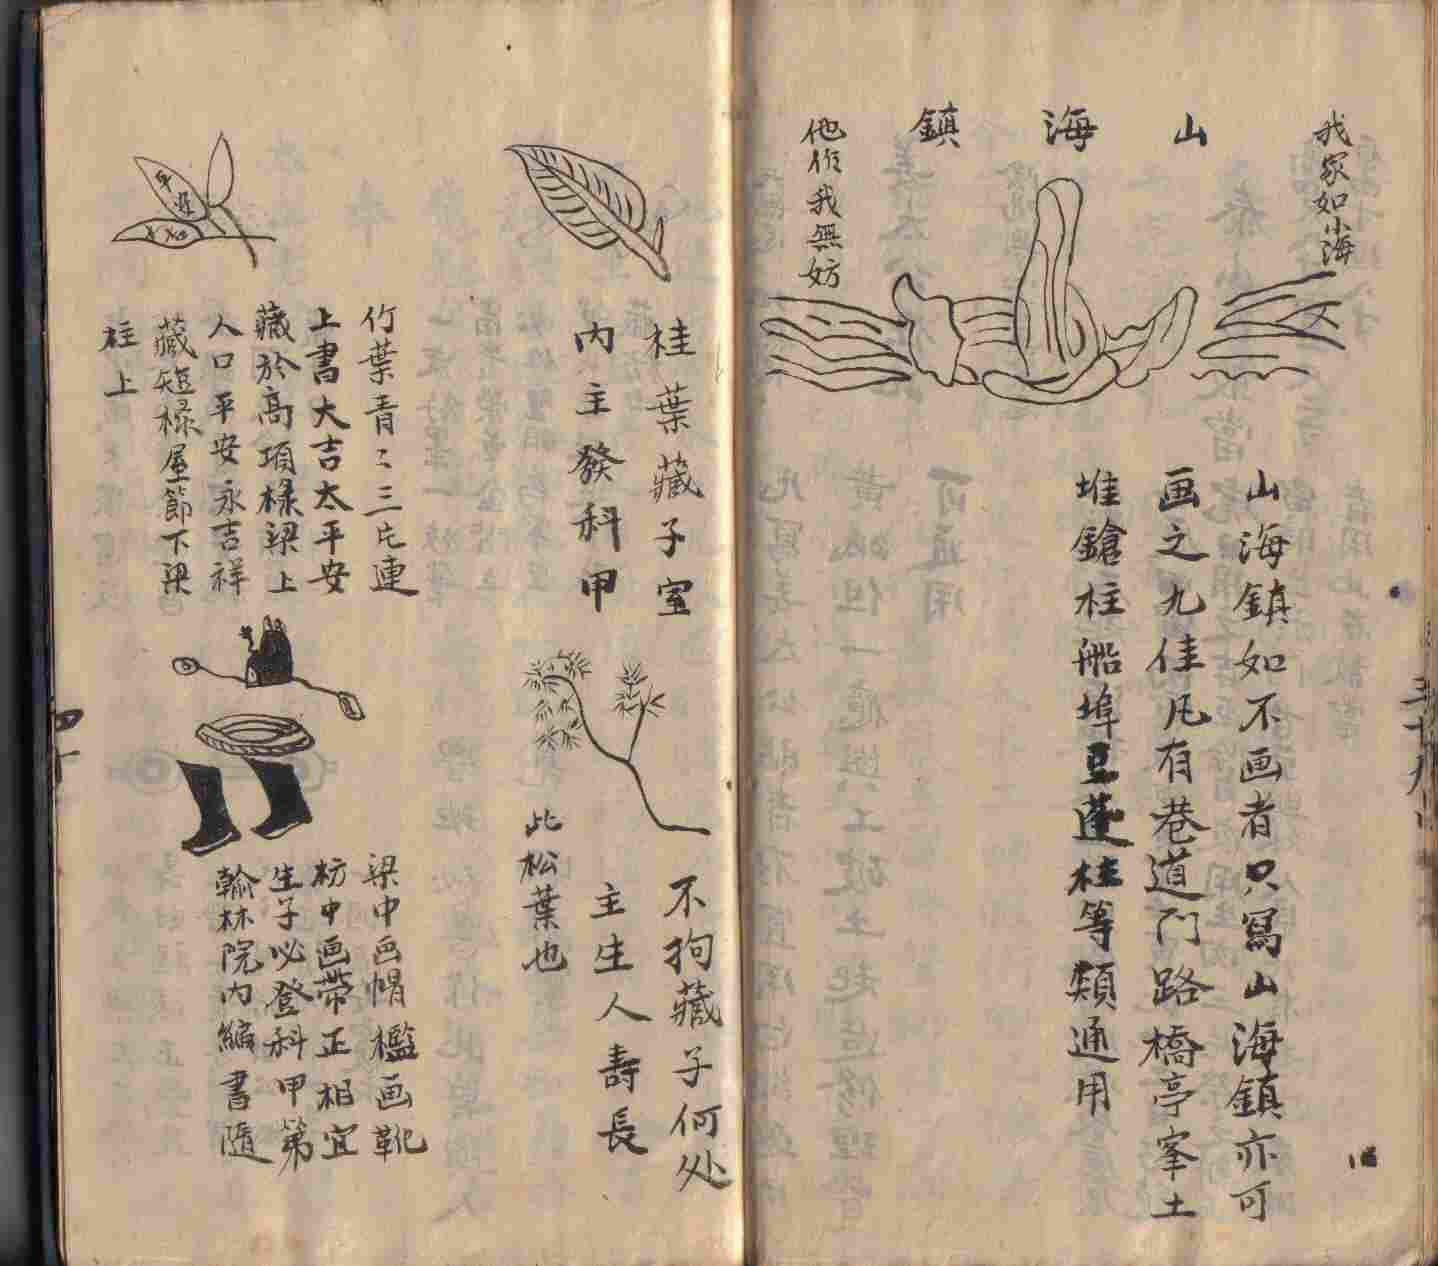 我家如山海
山海鎮
他作我無妨
山海鎮如不画者只寫山海鎮亦可
画之尤佳凡有巷道門路橋亭峯土
堆鎗柱船埠豆蓬柱等類通用
三十九
桂葉藏子室
內主發科甲
不拘藏子何处
主生人壽長
此松葉也
竹葉青〻三片連
上書大吉太平安
藏於高項椽梁上
人口平安永吉祥
藏短椽屋節下梁
柱上
梁中画帽檻画靴
枋中画帶正相宜
生子必登科甲第
翰林院內編書隨
四十